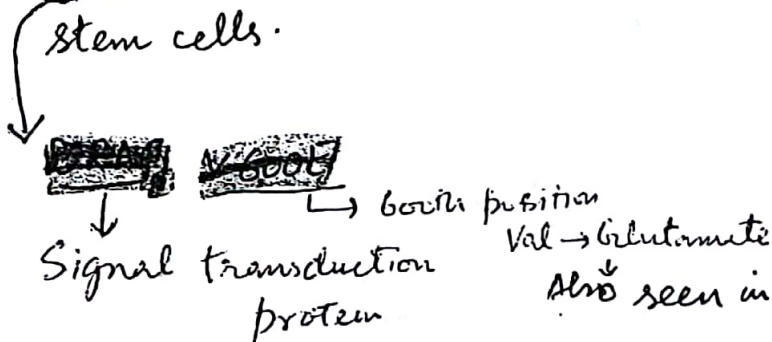 stem cells.
V600E
→ 600th position
Val → Glutamate
Signal transduction
protein
Also seen in